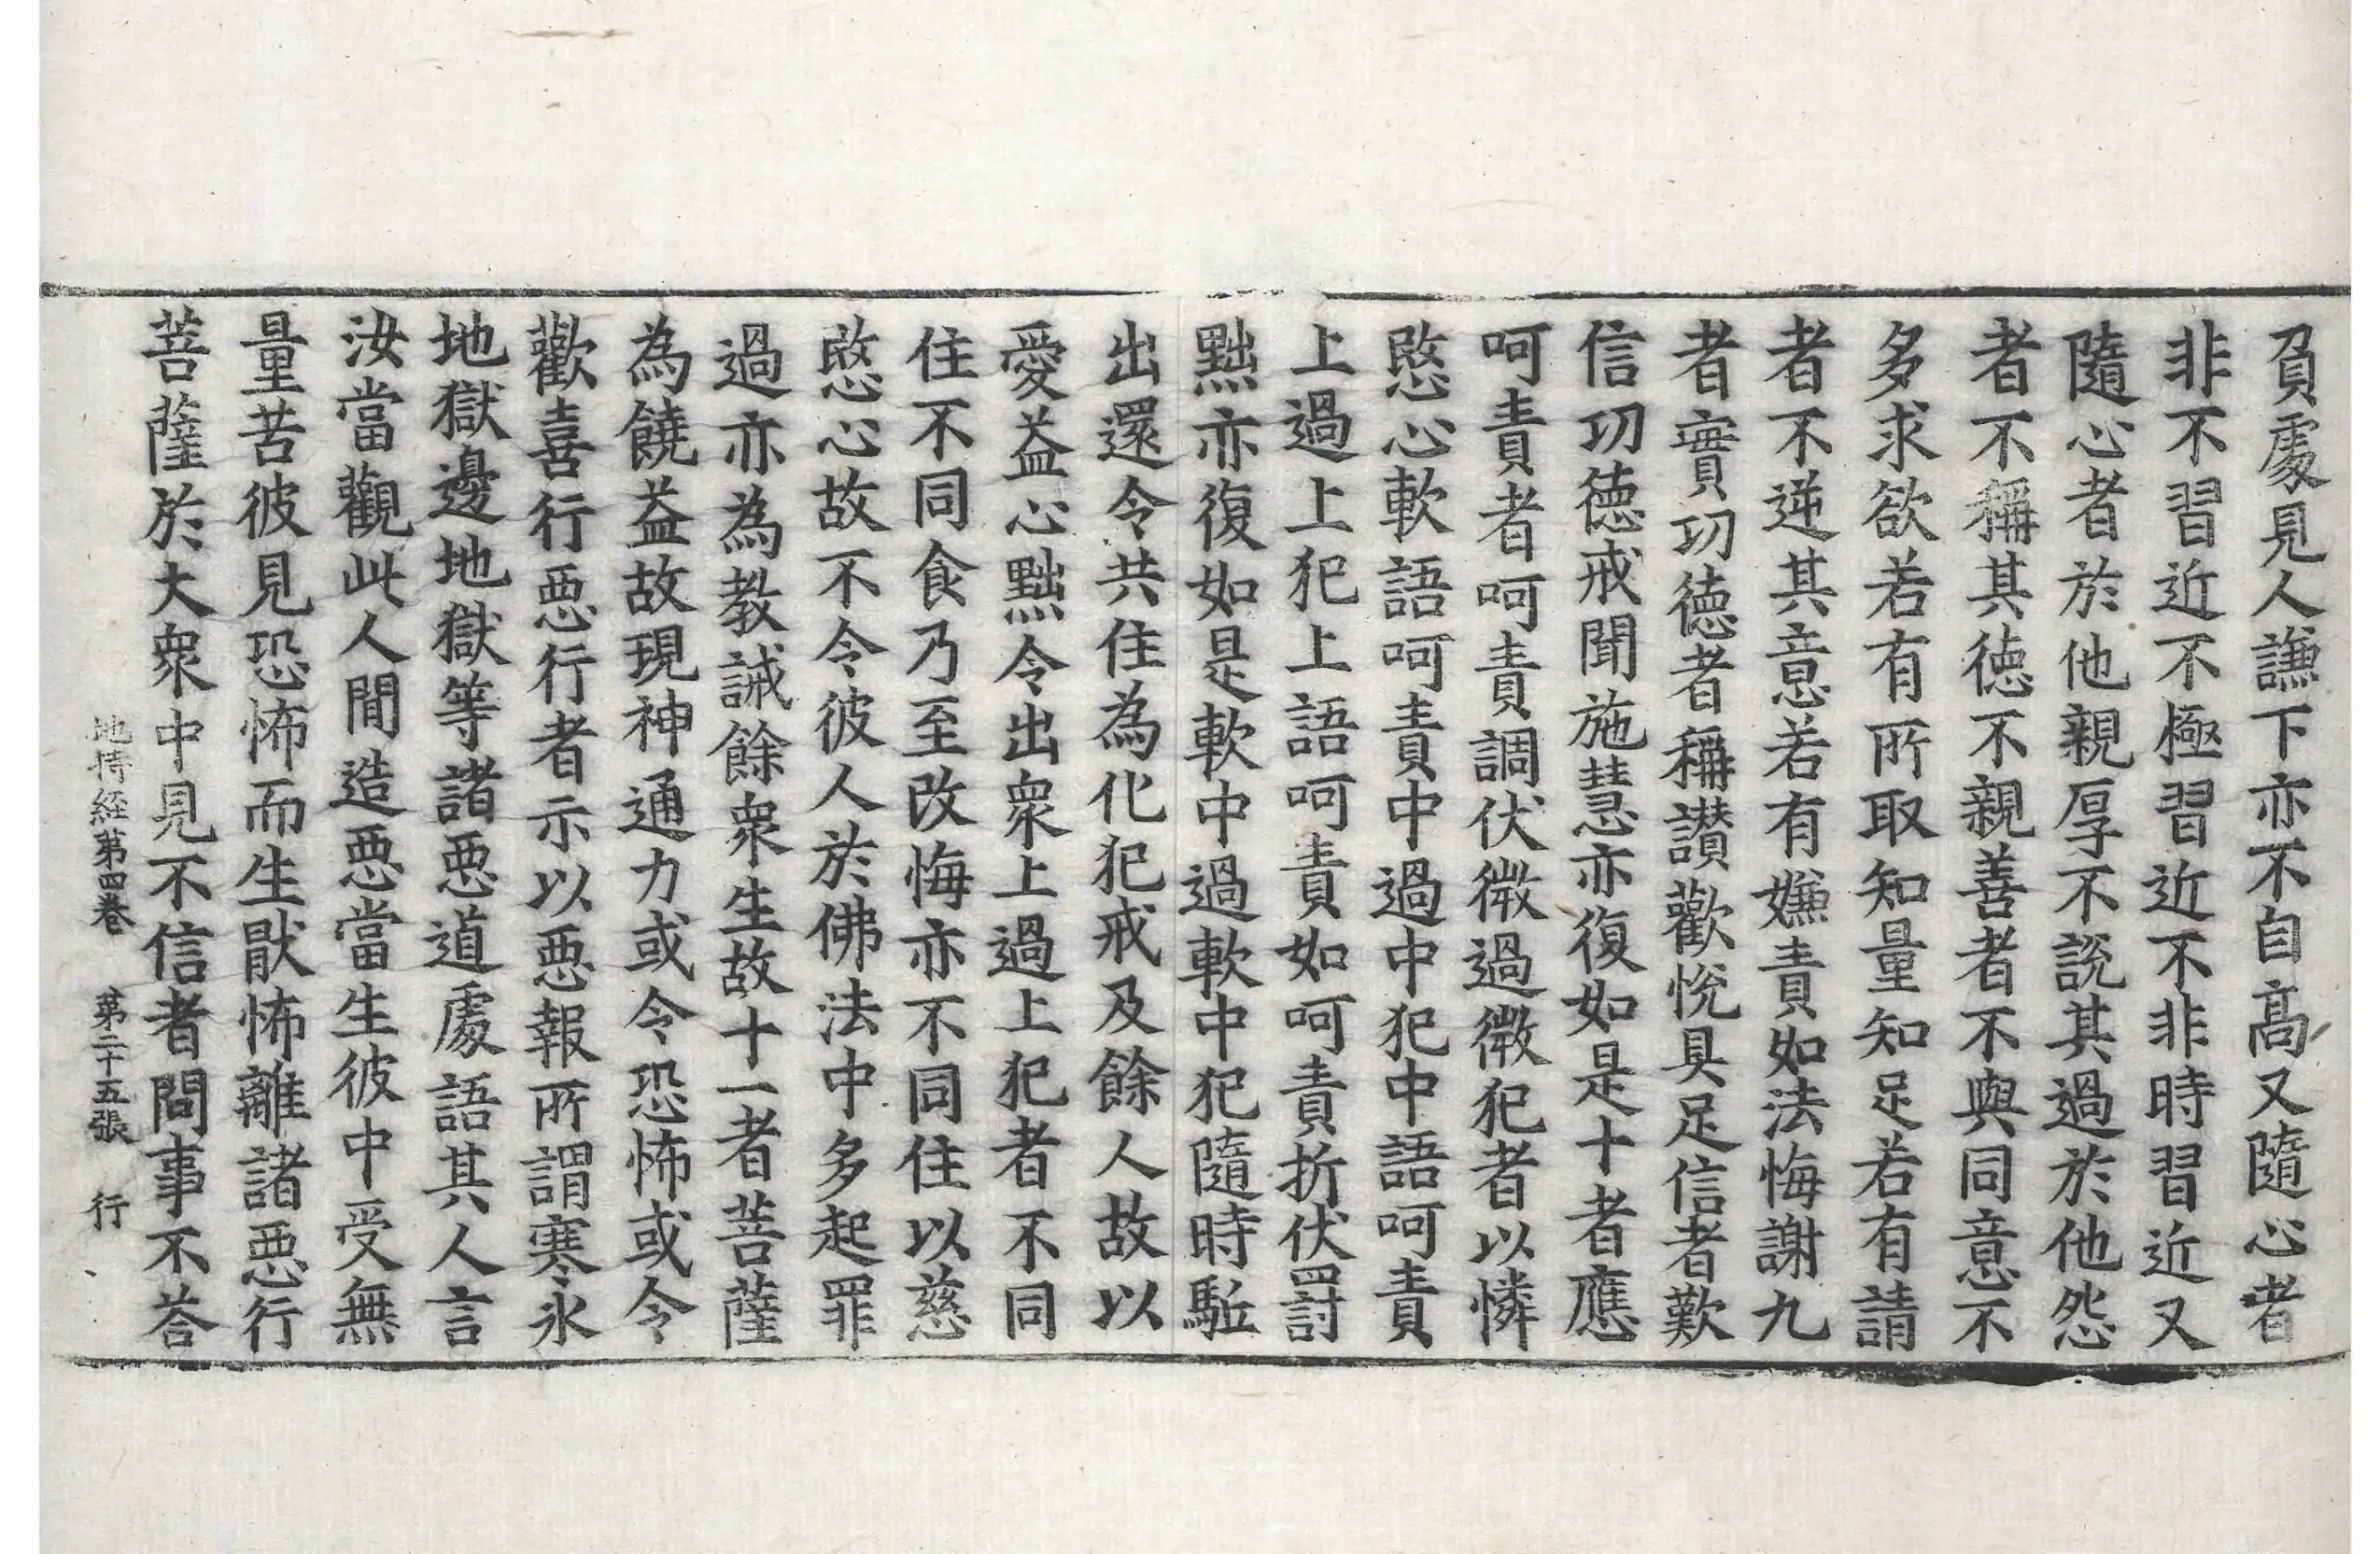 負處見人謙下亦不自髙又隨心者
非不習近不極習近不非時習近又
隨心者於他親厚不說其過於他怨
者不稱其德不親善者不與同意不
多求欲若有所取知量知足若有請
者不逆其意若有嫌責如法悔謝九
者實功德者稱讃歡悅具足信者歎
信功德戒聞施慧亦復如是十者應
呵責者呵責調伏微過微犯者以憐
愍心軟語呵責中過中犯中語呵責
上過上犯上語呵責如呵責折伏罰
黜亦復如是軟中過軟中犯隨時駈
出還令共住為化犯戒及餘人故以
愛益心黜令出衆上過上犯者不同
住不同食乃至改悔亦不同住以慈
愍心故不令彼人於佛法中多起罪
過亦為教誡餘衆生故十一者菩薩
為饒益故現神通力或令恐怖或令
歡喜行惡行者示以惡報所謂寒氷
地獄邊地獄等諸惡道處語其人言
汝當觀此人間造惡當生彼中受無
量苦彼見恐怖而生猒怖離諸惡行
菩薩於大衆中見不信者問事不荅
地持経第四卷 第二十五張 行